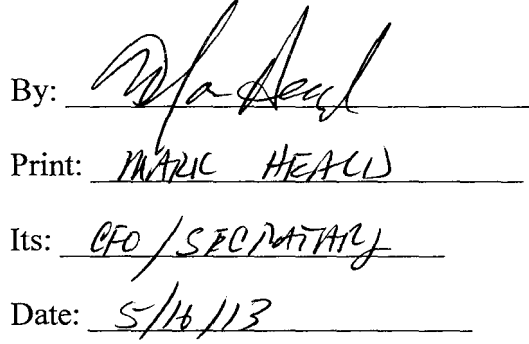 By: Mark Heald
Print: MARK HEALD
Its: CFO / SECRETARY
Date: 5/16/13